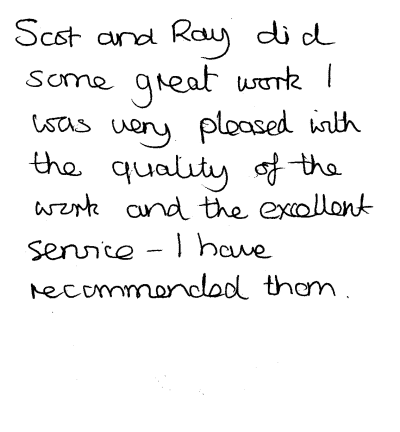 Scot and Ray did
some great work I
was very pleased with
the quality of the
work and the excellent
service - I have
recommended them.